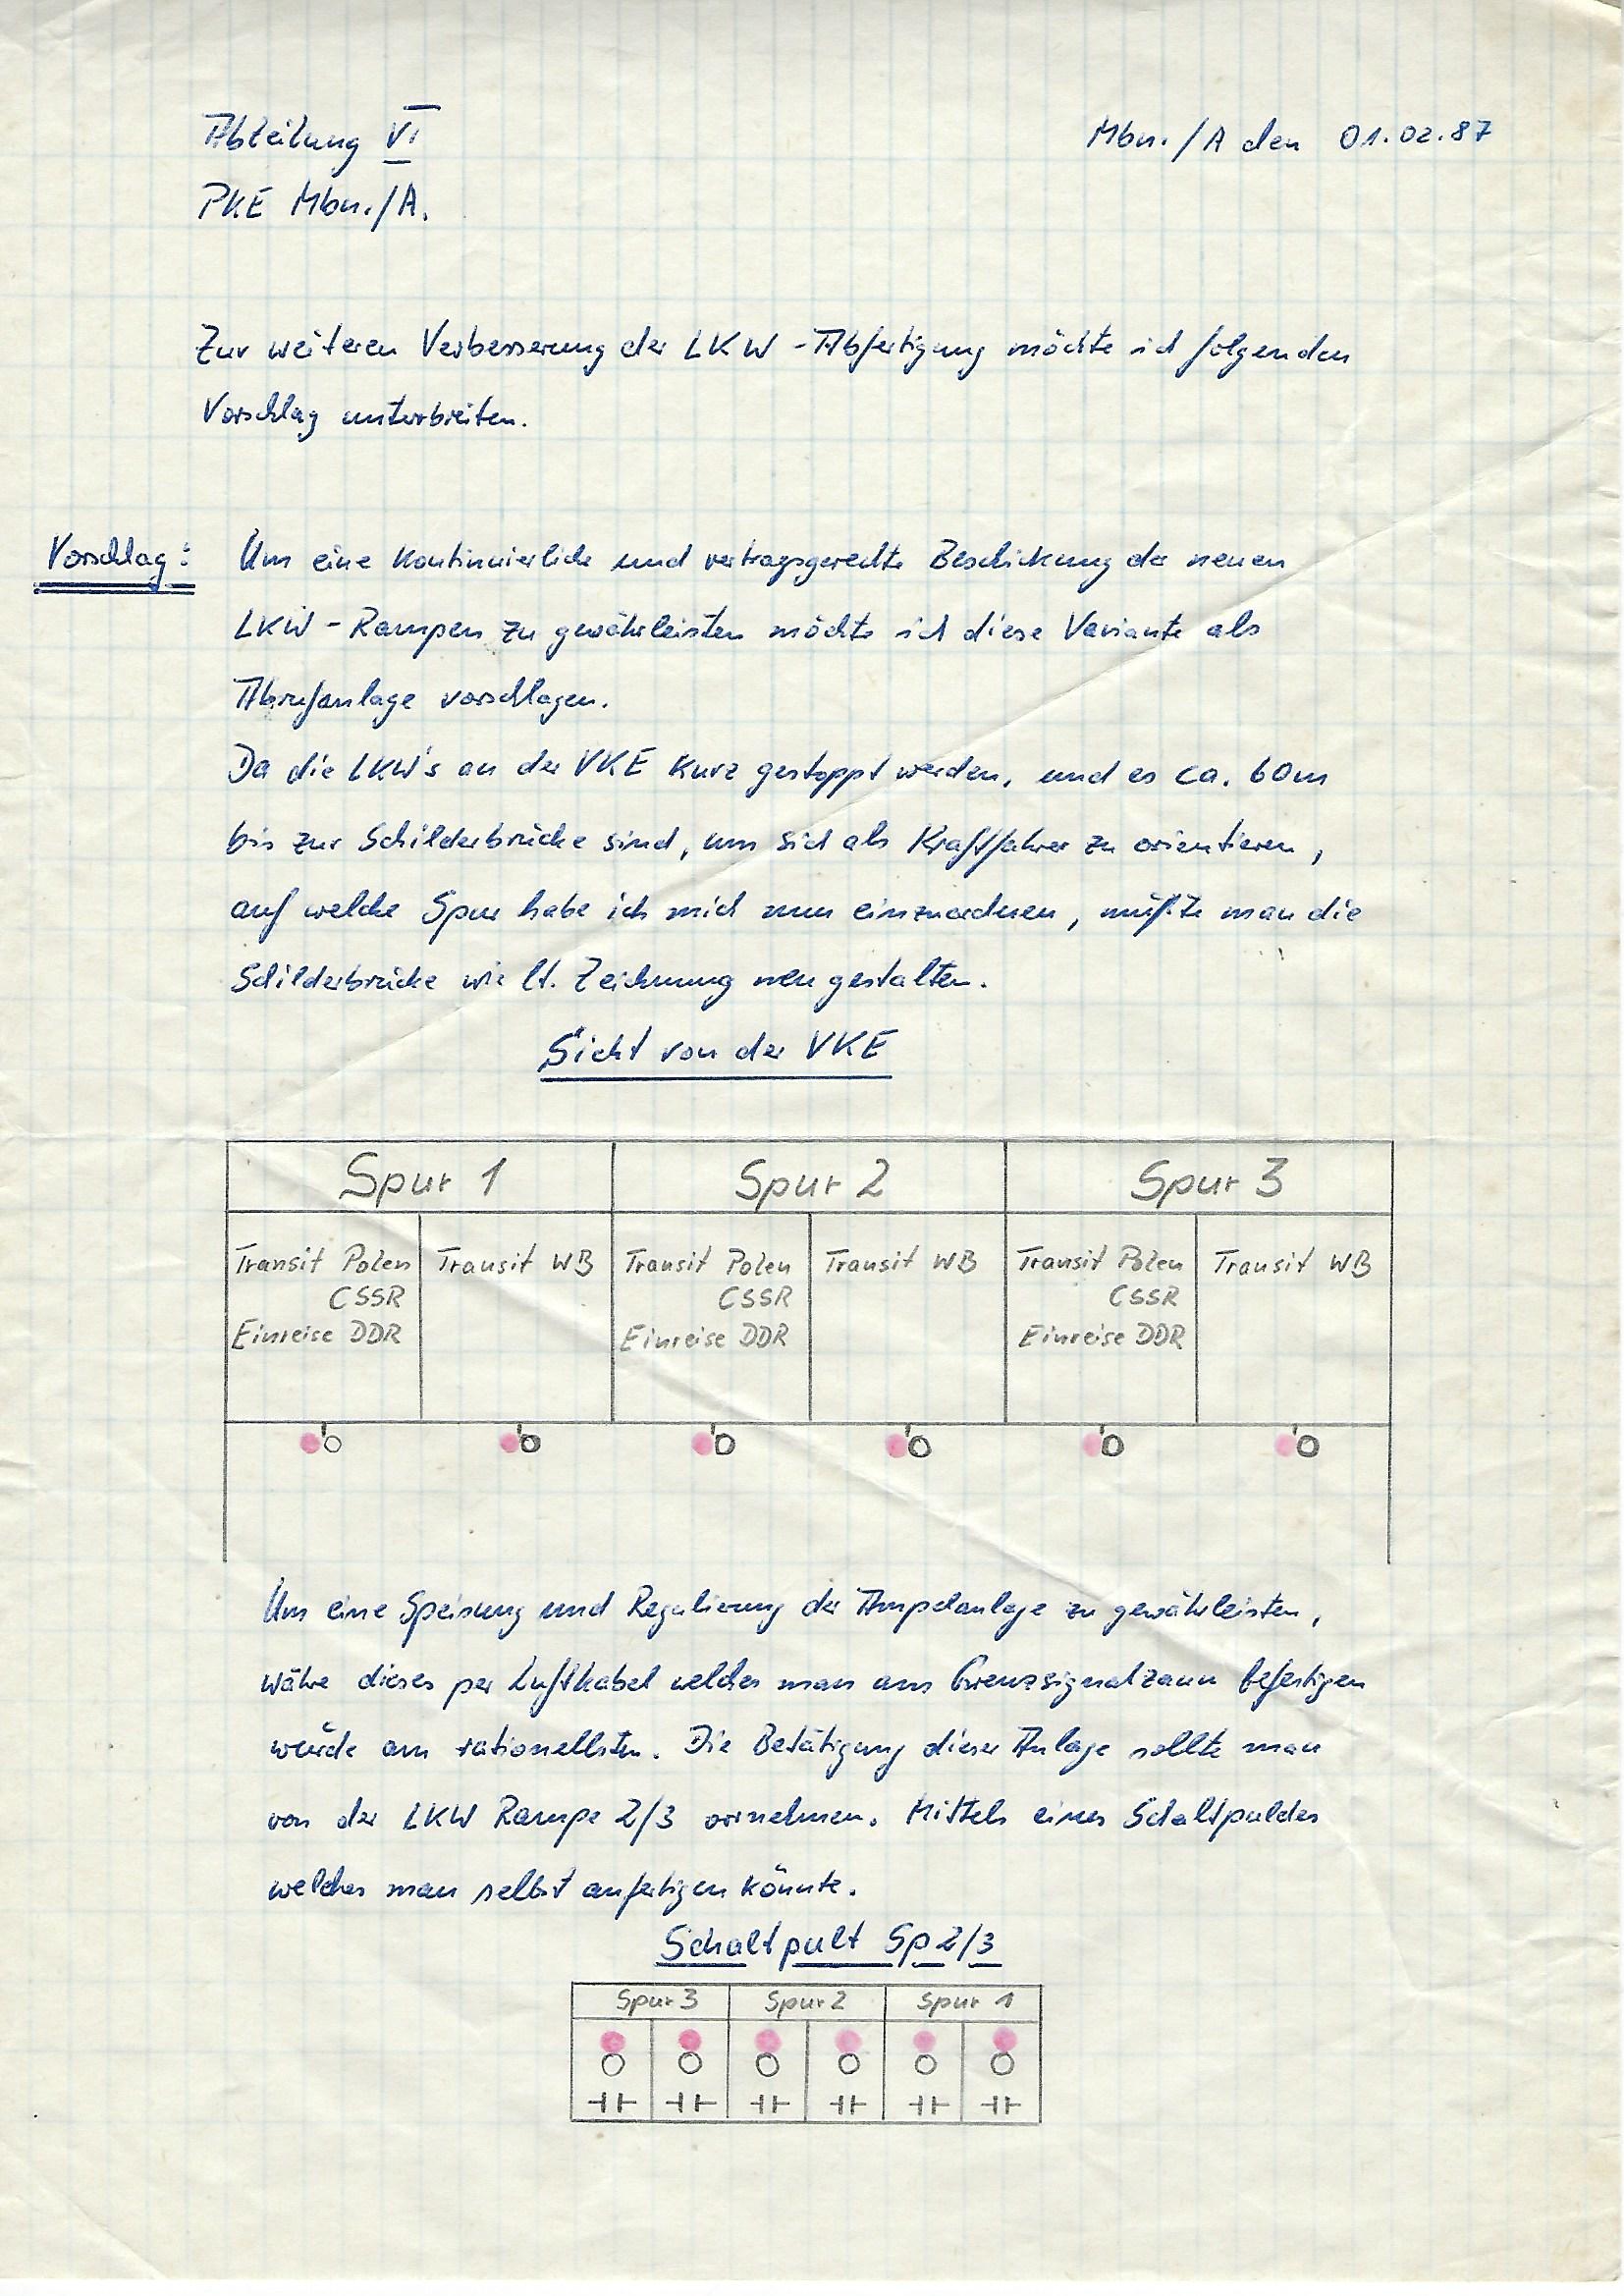 Abteilung VI
Mbn./A den 01.02.87
PKE Mbn./A.
Zur weiteren Verbesserung der LKW-Abfertigung möchte ich folgenden
Vorschlag unterbreiten.
Vorschlag: Um eine kontinuierliche und vertragsgerechte Beschickung der neuen
LKW-Rampen zu gewährleisten möchte ich diese Variante als
Abrufanlage vorschlagen.
Da die LKW's an der VKE kurz gestoppt werden, und es ca. 60m
bis zur Schilderbrücke sind, um sich als Kraftfahrer zu orientieren,
auf welche Spur habe ich mich nun einzuordnen, müßte man die
Schilderbrücke wie lt. Zeichnung neu gestalten.
Sicht von der VKE
Spur 1 Spur 2 Spur 3
Transit Polen Transit WB Transit Polen Transit WB Transit Polen Transit WB
CSSR CSSR CSSR
Einreise DDR Einreise DDR Einreise DDR
Um eine Speisung und Regulierung der Ampelanlage zu gewährleisten,
währe dieses per Luftkabel welches man am Grenzsignalzaun befestigen
würde am rationellsten. Die Betätigung dieser Anlage sollte man
von der LKW Rampe 2/3 vornehmen. Mittels eines Schaltpuldes
welches man selbst anfertigen könnte.
Schaltpult Sp 2/3
Spur 3 Spur 2 Spur 1